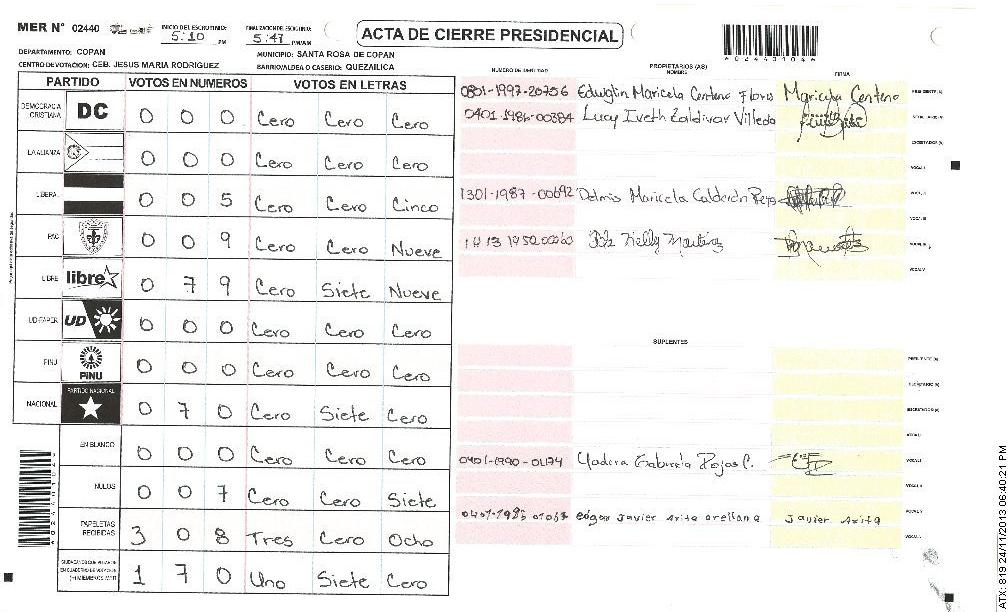 MER N° 02440
INICIO DEL ESCRUTINIO: 5:10 PM
FINALIZACION DEL ESCRUTINIO: 5:47 PM/AM
ACTA DE CIERRE PRESIDENCIAL
DEPARTAMENTO: COPAN
MUNICIPIO: SANTA ROSA DE COPAN
CENTRO DE VOTACION: CEB. JESUS MARIA RODRIGUEZ
BARRIO/ALDEA O CASERIO: QUEZAILICA
PARTIDO VOTOS EN NUMEROS VOTOS EN LETRAS
DEMOCRACIA CRISTIANA DC 0 0 0 Cero Cero Cero
LA ALIANZA 0 0 0 Cero Cero Cero
LIBERAL 0 0 5 Cero Cero Cinco
PAC 0 0 9 Cero Cero Nueve
LIBRE libre 0 7 9 Cero Siete Nueve
UD-FAPER UD 0 0 0 Cero Cero Cero
PINU PiNU 0 0 0 Cero Cero Cero
NACIONAL PARTIDO NACIONAL 0 7 0 Cero Siete Cero
EN BLANCO 0 0 0 Cero Cero Cero
NULOS 0 0 7 Cero Cero Siete
PAPELETAS RECIBIDAS 3 0 8 Tres Cero Ocho
1 7 0 Uno Siete Cero
NUMERO DE IDENTIDAD
PROPIETARIOS (AS)
NOMBRE
FIRMA
0801-1997-20756 Edwglin Maricela Centeno Flores Maricela Centeno
0401-1986-00384 Lucy Iveth Zaldivar Villeda
1301-1987-00692 Maricela Calderón
1413 1950 00060 Nelly Martínez
SUPLENTES
0401-1990-01174 Yadira Gabriela Rojas C.
edgar Javier Arita arellana Javier Arita
ATX: 819 24/11/2013 06:40:21 PM